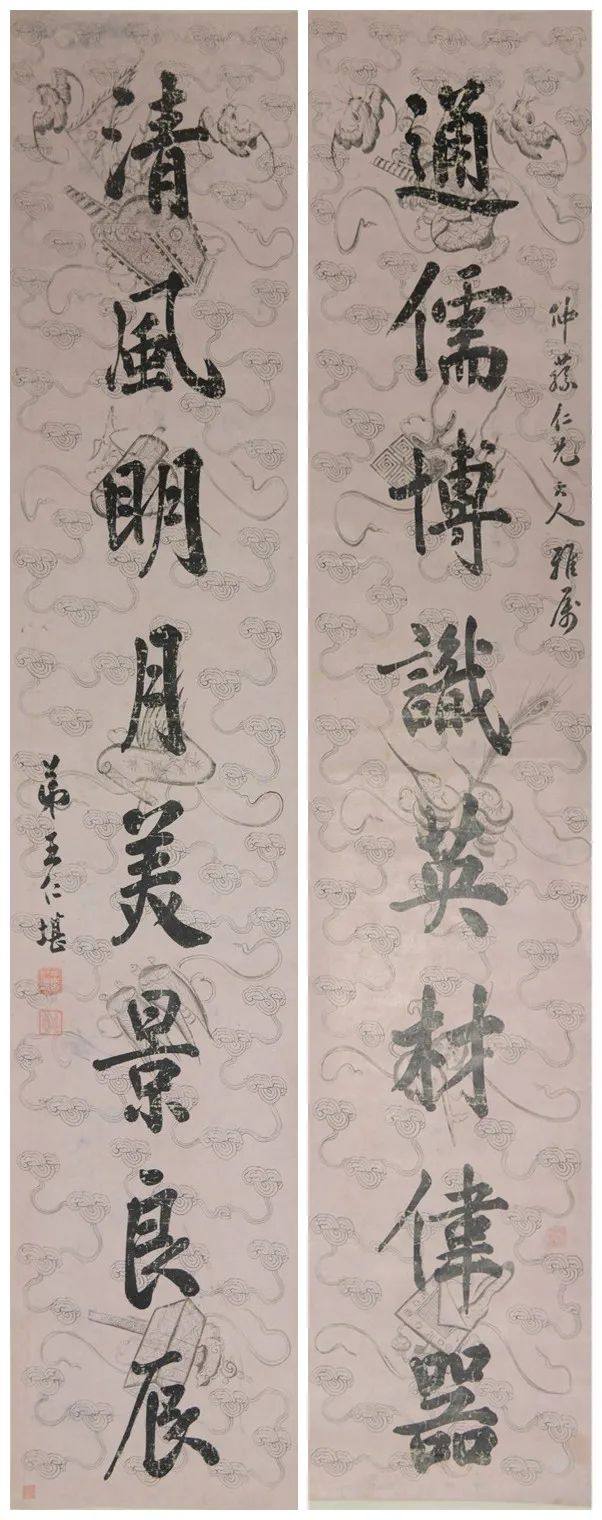 仲蘇仁兄大人雅属
通儒博識英材偉器
清風明月美景良辰
弟王仁堪